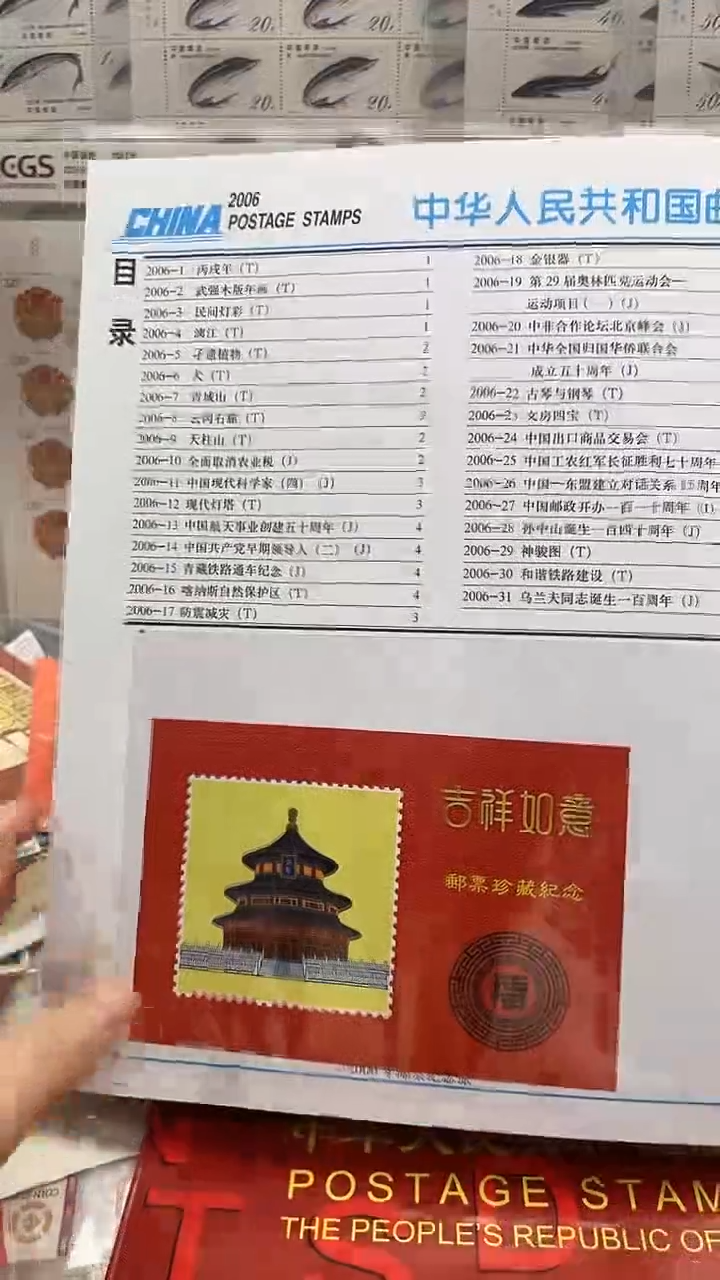 20.
20.
20.
20.
CGS
CHINA
2006
POSTAGE STAMPS
中华人民共和国
目录
2006-1 丙戌年 (T) 1
2006-2 武强木版年画 (T) 1
2006-3 民间灯彩 (T) 1
2006-4 漓江 (T) 1
2006-5 孑遗植物 (T) 2
2006-6 犬 (T) 2
2006-7 青城山 (T) 2
2006-8 云冈石窟 (T)
2006-9 天柱山 (T) 2
2006-10 全面取消农业税 (J) 2
2006-11 中国现代科学家 (四) (J) 3
2006-12 现代灯塔 (T) 3
2006-13 中国航天事业创建五十周年 (J) 4
2006-14 中国共产党早期领导人 (二) (J) 4
2006-15 青藏铁路通车纪念 (J) 4
2006-16 喀纳斯自然保护区 (T) 4
2006-17 防震减灾 (T) 3
2006-18 金银器 (T)
2006-19 第29届奥林匹克运动会—
运动项目 (一) (J)
2006-20 中非合作论坛北京峰会 (J)
2006-21 中华全国归国华侨联合会
成立五十周年 (J)
2006-22 古琴与钢琴 (T)
2006-23 文房四宝 (T)
2006-24 中国出口商品交易会 (T)
2006-25 中国工农红军长征胜利七十周年
2006-26 中国—东盟建立对话关系15周年
2006-27 中国邮政开办一百一十周年 (J)
2006-28 孙中山诞生一百四十周年 (J)
2006-29 神骏图 (T)
2006-30 和谐铁路建设 (T)
2006-31 乌兰夫同志诞生一百周年 (J)
吉祥如意
郵票珍藏紀念
POSTAGE STAM
THE PEOPLE'S REPUBLIC OF